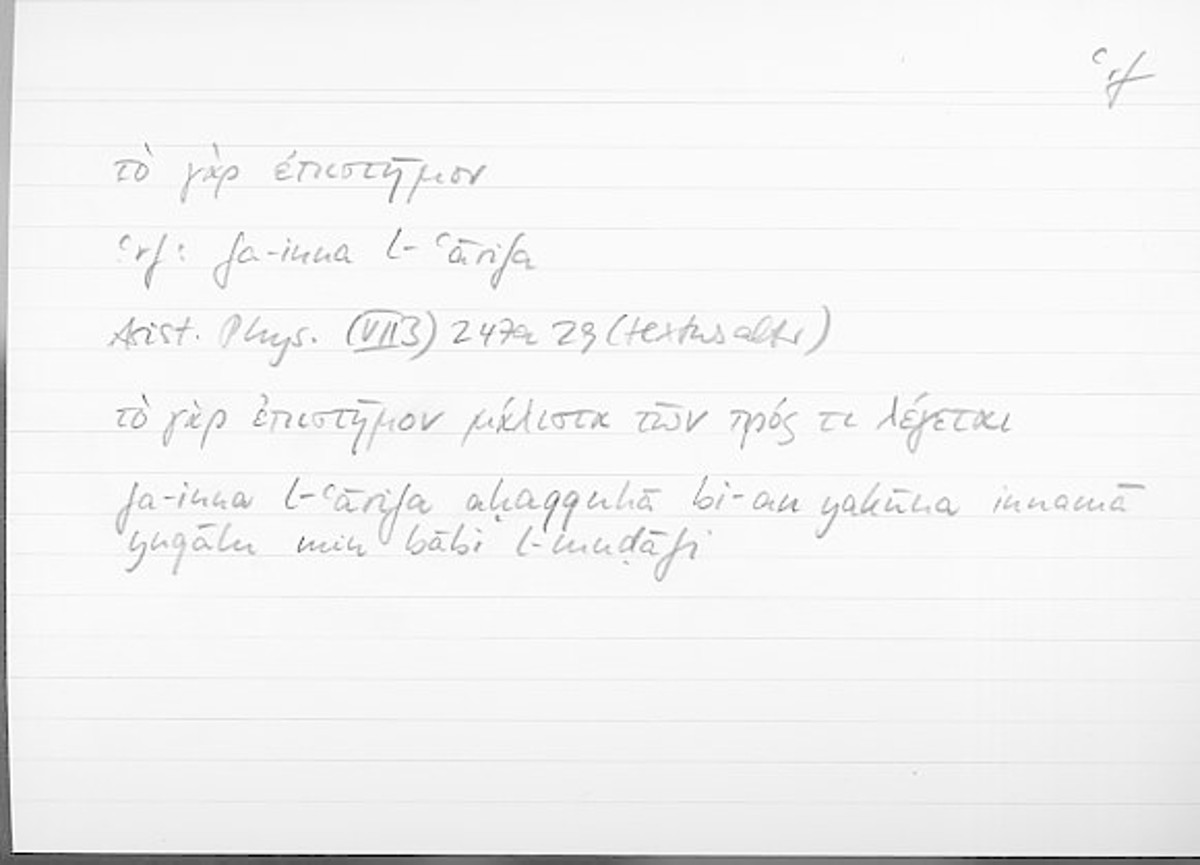 ʿrf
τὸ γὰρ ἐπιστῆμον
ʿrf: fa-inna l-ʿārifa
Arist. Phys. (VII 3) 247a 29 (textus alter)
τὸ γὰρ ἐπιστῆμον μάλιστα τῶν πρός τι λέγεται
fa-inna l-ʿārifa aḥaqquhā bi-an yakūna innamā
yuqālu min bābi l-muḍāfi